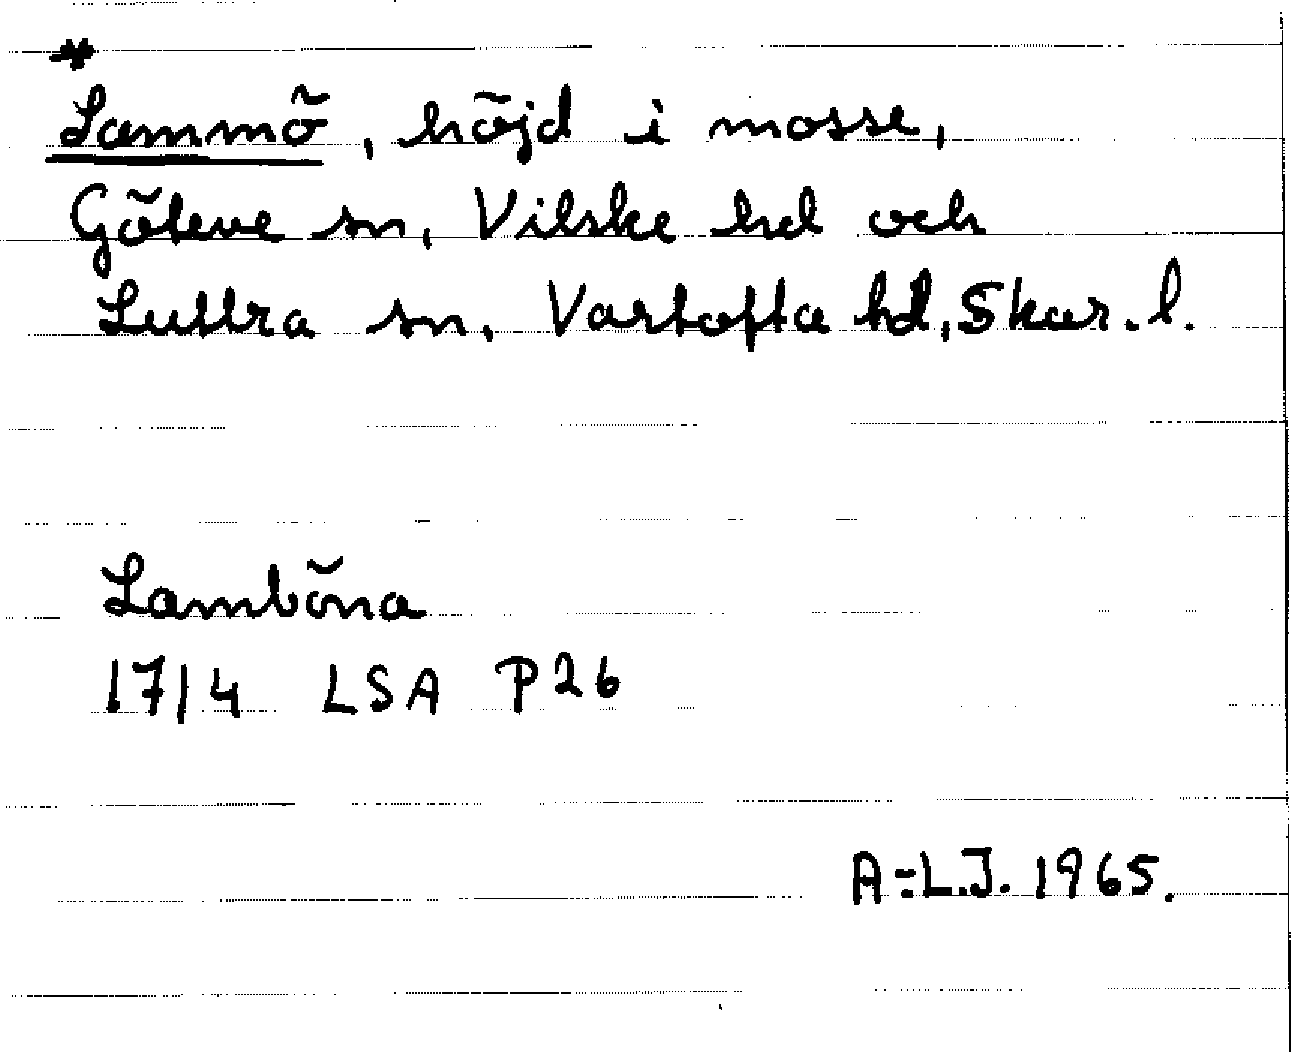 *
Lammö, höjd i mosse,
Göteve sn, Vilske hd och
Luttra sn, Vartofta hd, Skar. l.
Lamböna
17/4 LSA P26
A-L.J. 1965.